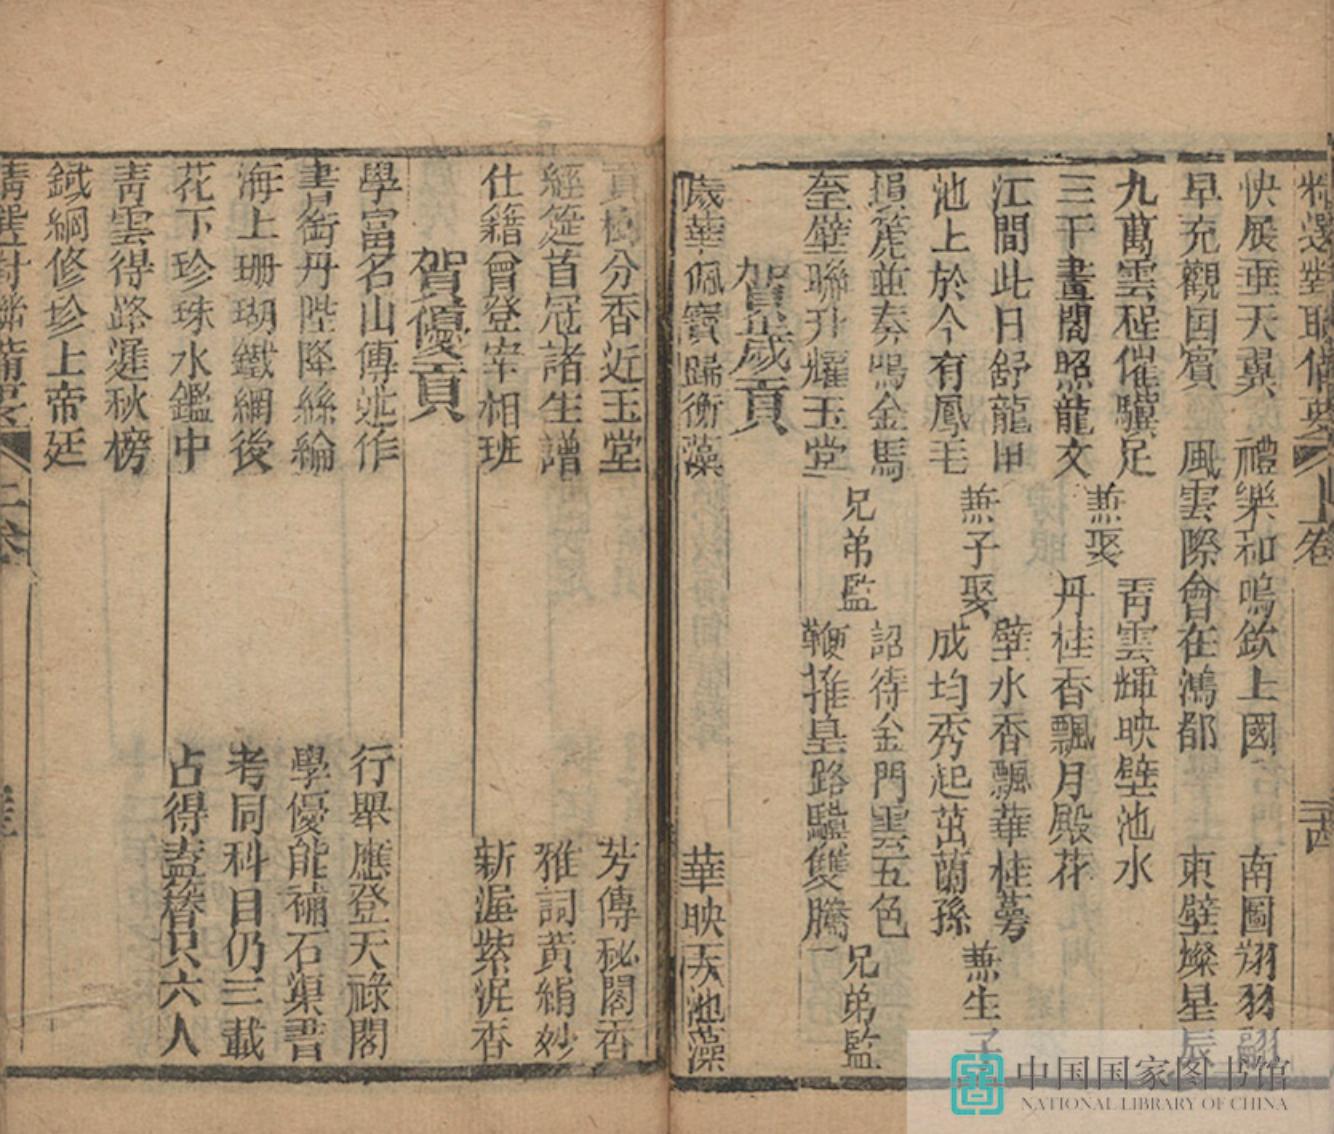 精選對聯備要 上卷 三四
快展垂天翼 禮樂和鳴欽上國 南圖翔羽翮
早充觀国賓 風雲際會在鴻都 東壁燦星辰
九萬雲程催驥足 兼娶 青雲輝映壁池水
三千畫閣照龍文 丹桂香飄月殿花
江間此日舒龍甲 兼子娶 壁水香飄華桂蕚 兼生子
池上於今有鳳毛 成均秀起茁蘭孫
塤篪並奏鳴金馬 兄弟監 詔待金門雲五色 兄弟監
奎壁聯升耀玉堂 鞭推皇路驥雙騰
賀歲貢
歲華佩寶歸衡藻 華映天池藻
貢樹分香近玉堂 芳傳秘閣香
經筵首冠諸生譜 雅詞黃絹妙
仕籍曾登宰相班 新渥紫泥香
賀優貢
學富名山傳述作 行舉應登天祿閣
書銜丹陛降絲綸 學優能補石渠書
海上珊瑚鐵網後 考同科目仍三載
花下珍珠水鑑中 占得盍簪只六人
青雲得路遲秋榜
鉞網修珍上帝廷
精選對聯備要 上卷
中国国家图书馆
NATIONAL LIBRARY OF CHINA